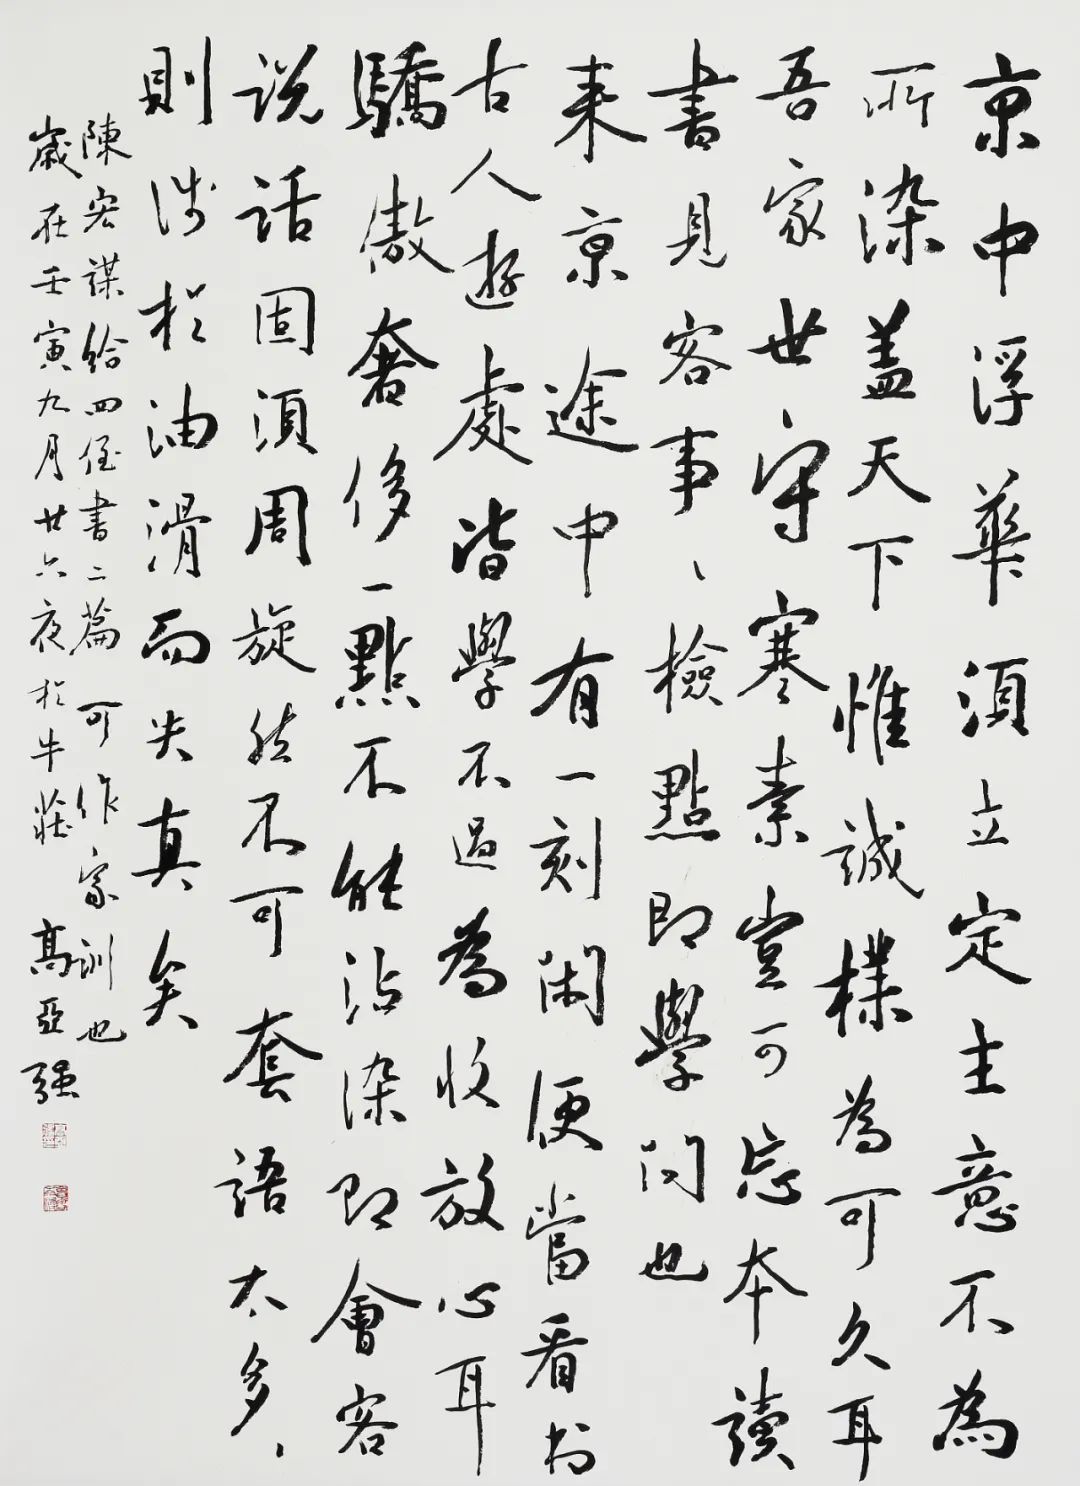 京中浮華須立定主意不為
所染蓋天下惟誠樸為可久耳
吾家世守寒素豈可忘本讀
書見客事〻檢點即學問也
来京途中有一刻閑便當看书
古人遊處皆學不過為收放心耳
驕傲奢侈一點不能沾染即會客
説話固須周旋然不可套語太多〻
則涉於油滑而失真矣
陳宏謀給四侄書二篇可作家訓也
歲在壬寅九月廿六夜於牛莊 高亞强